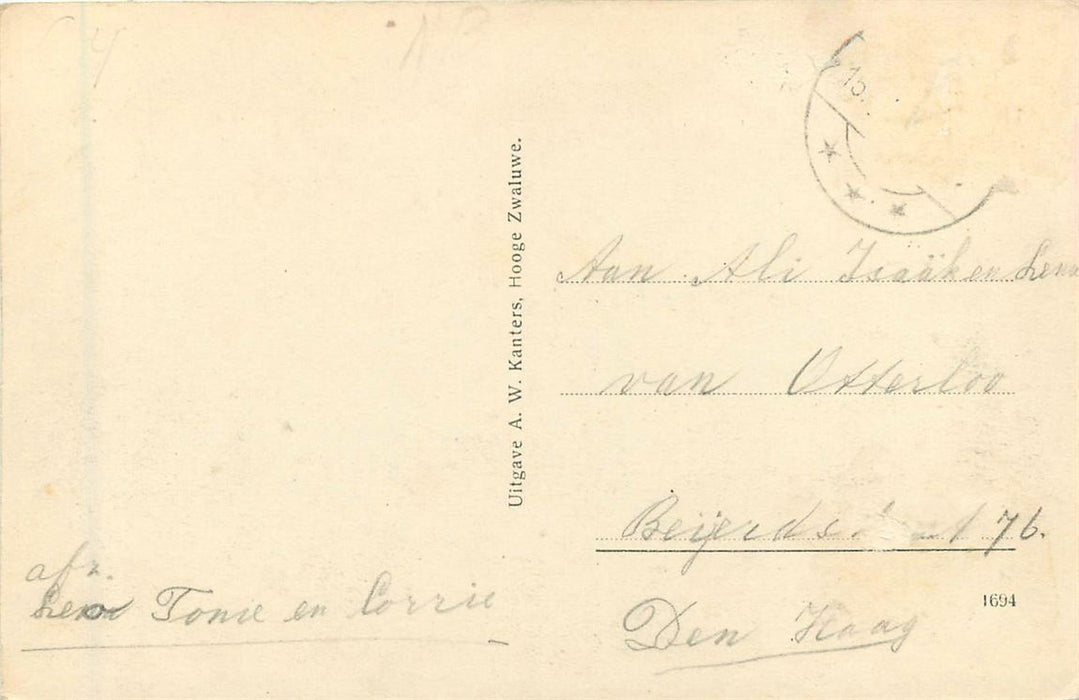 afz.
Lena Tonie en Corrie
Uitgave A. W. Kanters, Hooge Zwaluwe.
15.
Aan Ali Isaäk en Lena
van Otterloo
76.
1694
Den Haag